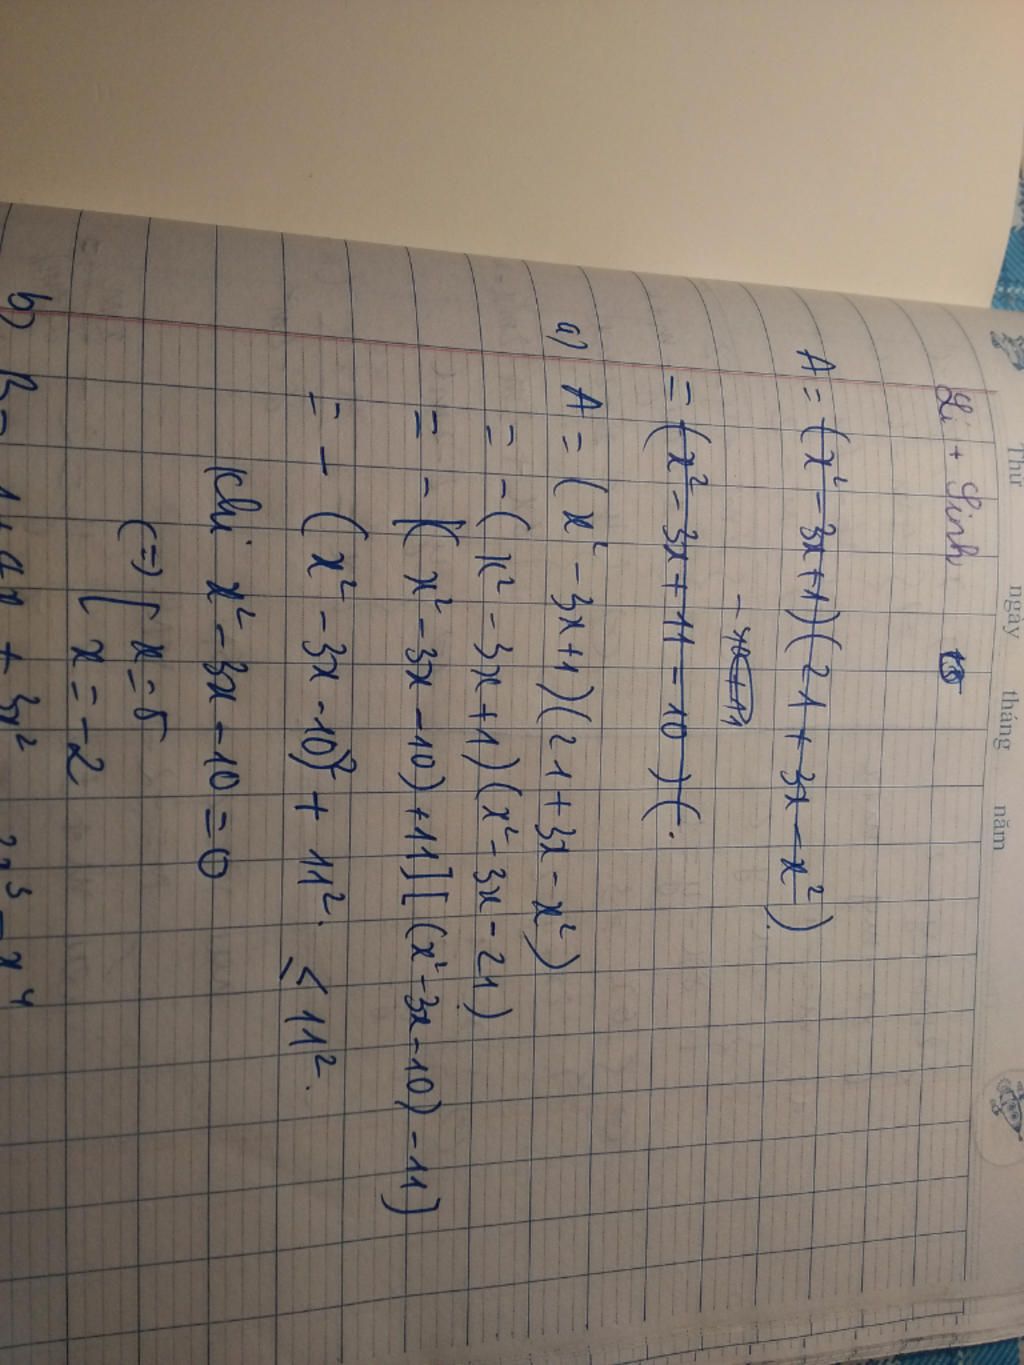 Thứ ngày tháng năm
Li + Sinh
A = (x² - 3x + 1)(21 + 3x - x²)
= (x² - 3x + 11 - 10)(
a) A = (x² - 3x + 1)(21 + 3x - x²)
= - (x² - 3x + 1)(x² - 3x - 21)
= - [(x² - 3x - 10) + 11][(x² - 3x - 10) - 11)
= - (x² - 3x - 10)² + 11² ≤ 11².
khi x² - 3x - 10 = 0
(=) [ x = 5
[ x = -2
b) B = 1 + 4x + 3x² 2x³ - x⁴